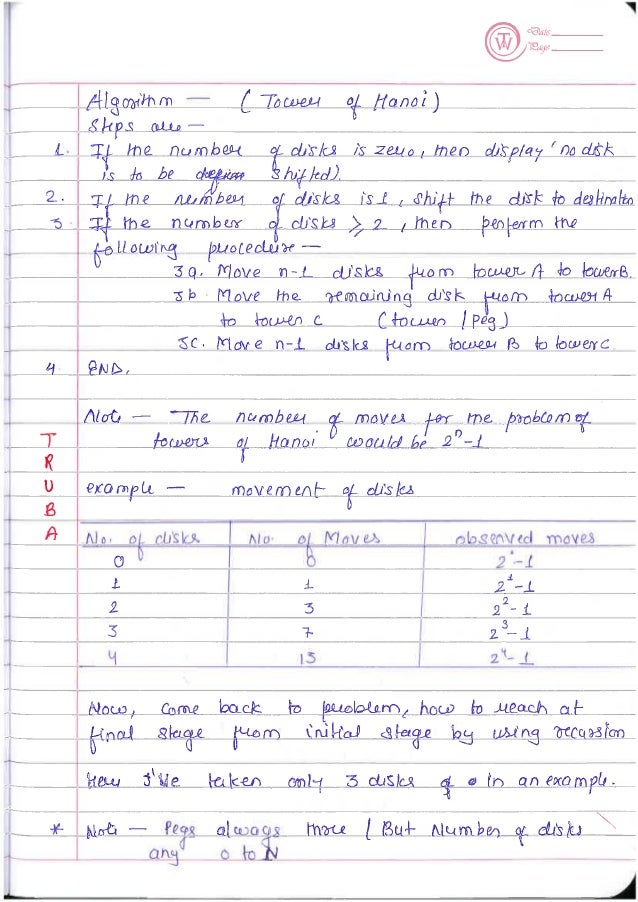 TW
Date
Page
Algorithm — ( Tower of Hanoi )
Steps are —
1. If the number of disks is zero, then display 'no disk
is to be shifted).
2. If the number of disks is 1, shift the disk to destination
3. If the number of disks ≥ 2, then perform the
following procedure —
3a. Move n-1 disks from tower A to tower B.
3b. Move the remaining disk from tower A
to tower C (tower / Peg)
3C. Move n-1 disks from tower B to tower C
4. END.
Note — The number of moves for the problem of
towers of Hanoi would be 2ⁿ-1
TRUBA
example — movement of disks
No. of disks No. of Moves observed moves
0 0 2⁰-1
1 1 2¹-1
2 3 2²-1
3 7 2³-1
4 15 2⁴-1
Now, come back to problem, how to reach at
final stage from initial stage by using recursion
Here I've taken only 3 disks in an example.
* Note — Pegs always three / But Number of disks
any 0 to N